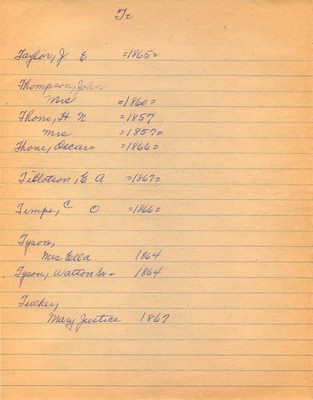 T=
Taylor, J E =1865=
Thompson, John
Mrs =1860=
Thone, H N =1857
Mrs =1857=
Thone, Oscar =1866=
Tillotson, E A =1867=
Timpe, C O =1866=
Tyson,
Mrs Ella 1864
Tyson, Watson Sr - 1864
Tucker,
Mary Justice 1867